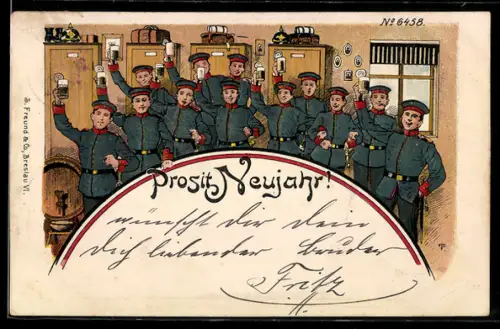 No 6458.
S. Freund & Co, Breslau VI.
Prosit Neujahr!
wünscht dir dein
dich liebender bruder
Fritz